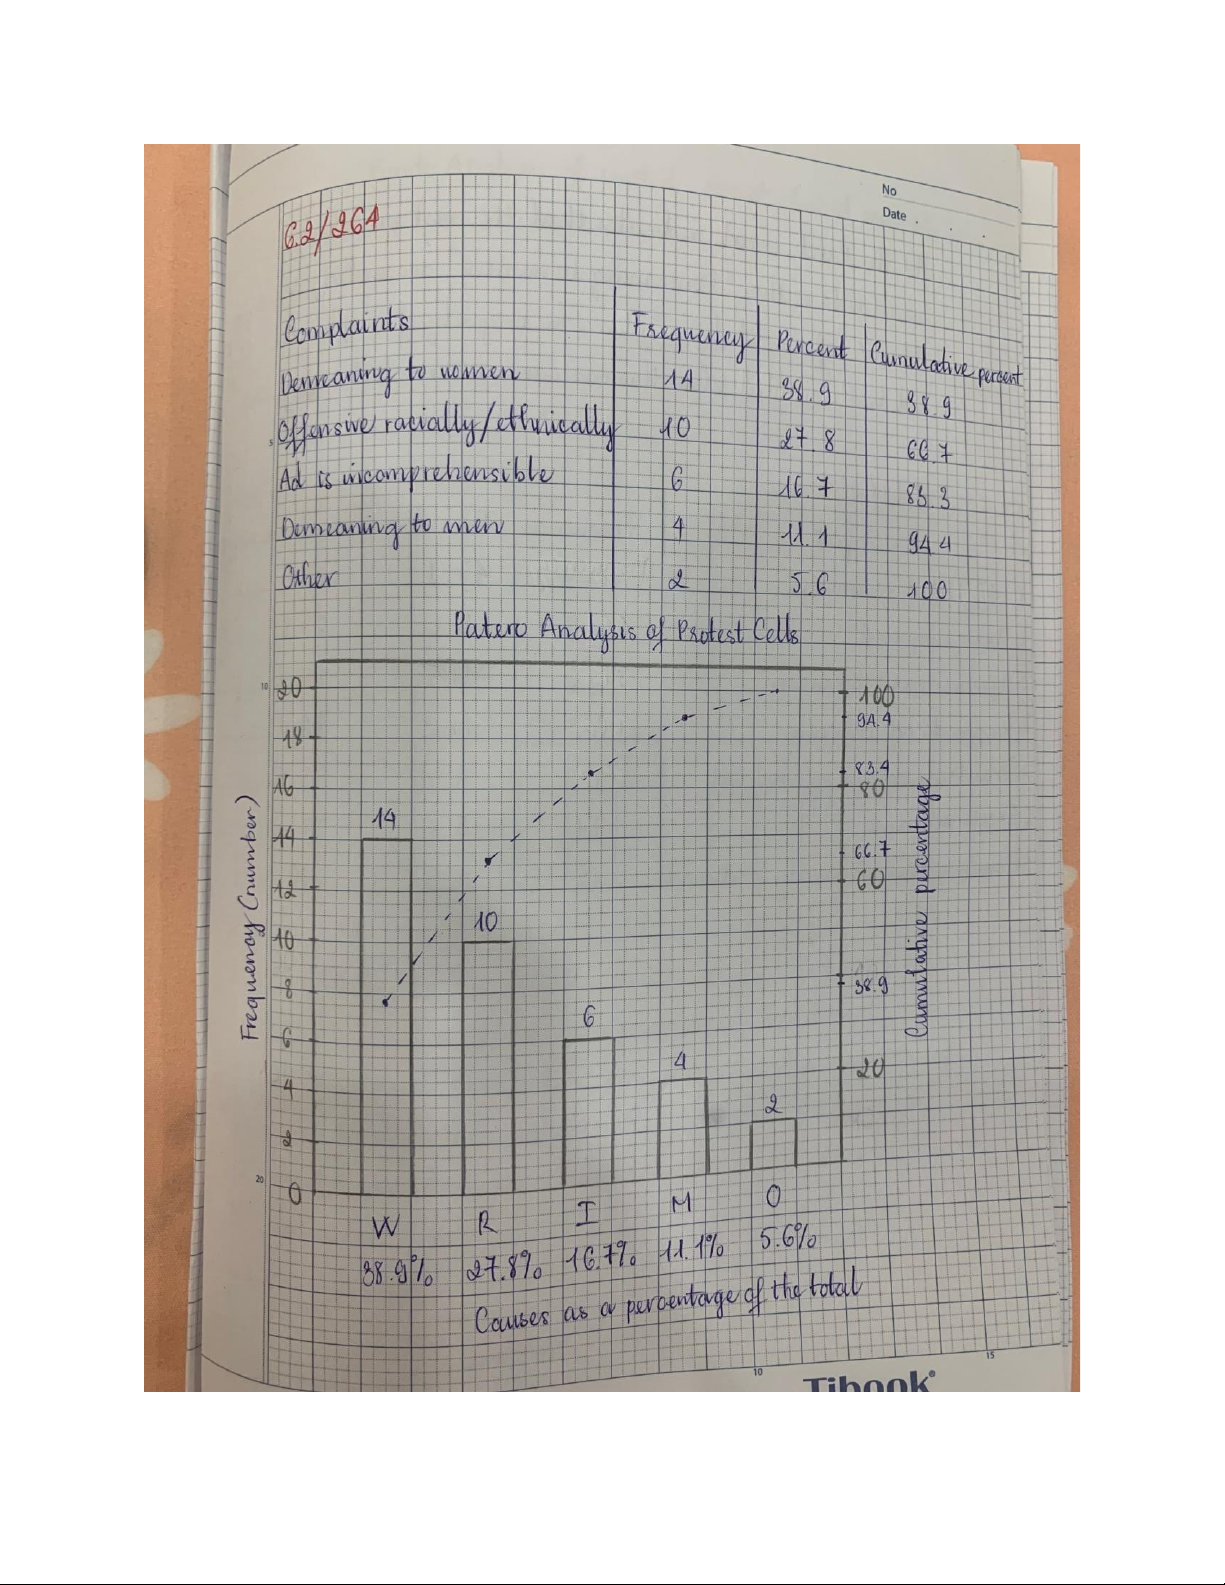 No
Date
6.2/264
Complaints Frequency Percent Cumulative percent
Demeaning to women 14 38.9 38.9
Offensive racially/ethnically 10 27.8 66.7
Ad is incomprehensible 6 16.7 83.3
Demeaning to men 4 11.1 94.4
Other 2 5.6 100
Patero Analysis of Protest Cells
10
20 100
94.4
18
83.4
16 80
14
14 66.7
12 60
10
10
8 38.9
6
6
4
4 20
2
2
20
0
Frequency (number)
Cumulative percentage
W R I M O
38.9% 27.8% 16.7% 11.1% 5.6%
Causes as a percentage of the total
10 15
Tibook